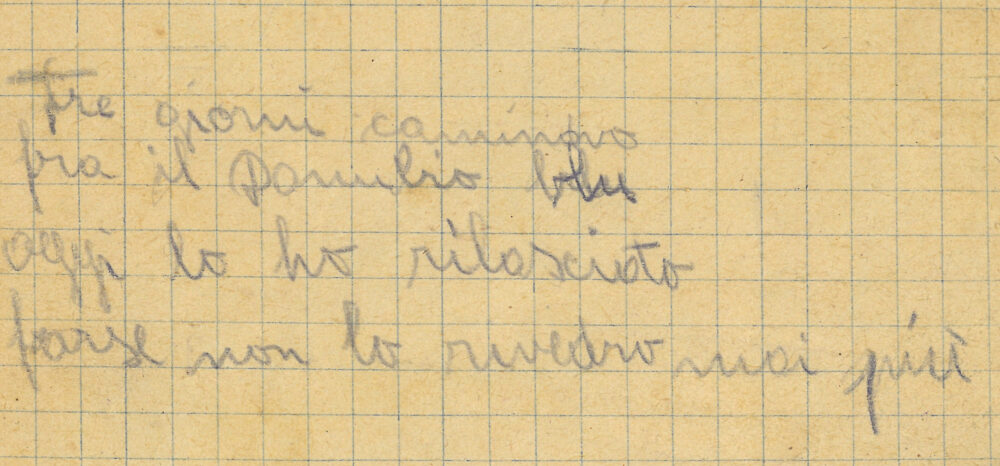 Tre giorni caminavo
fra il Danubio blu
oggi lo ho rilasciato
farse non lo rivedro mai più